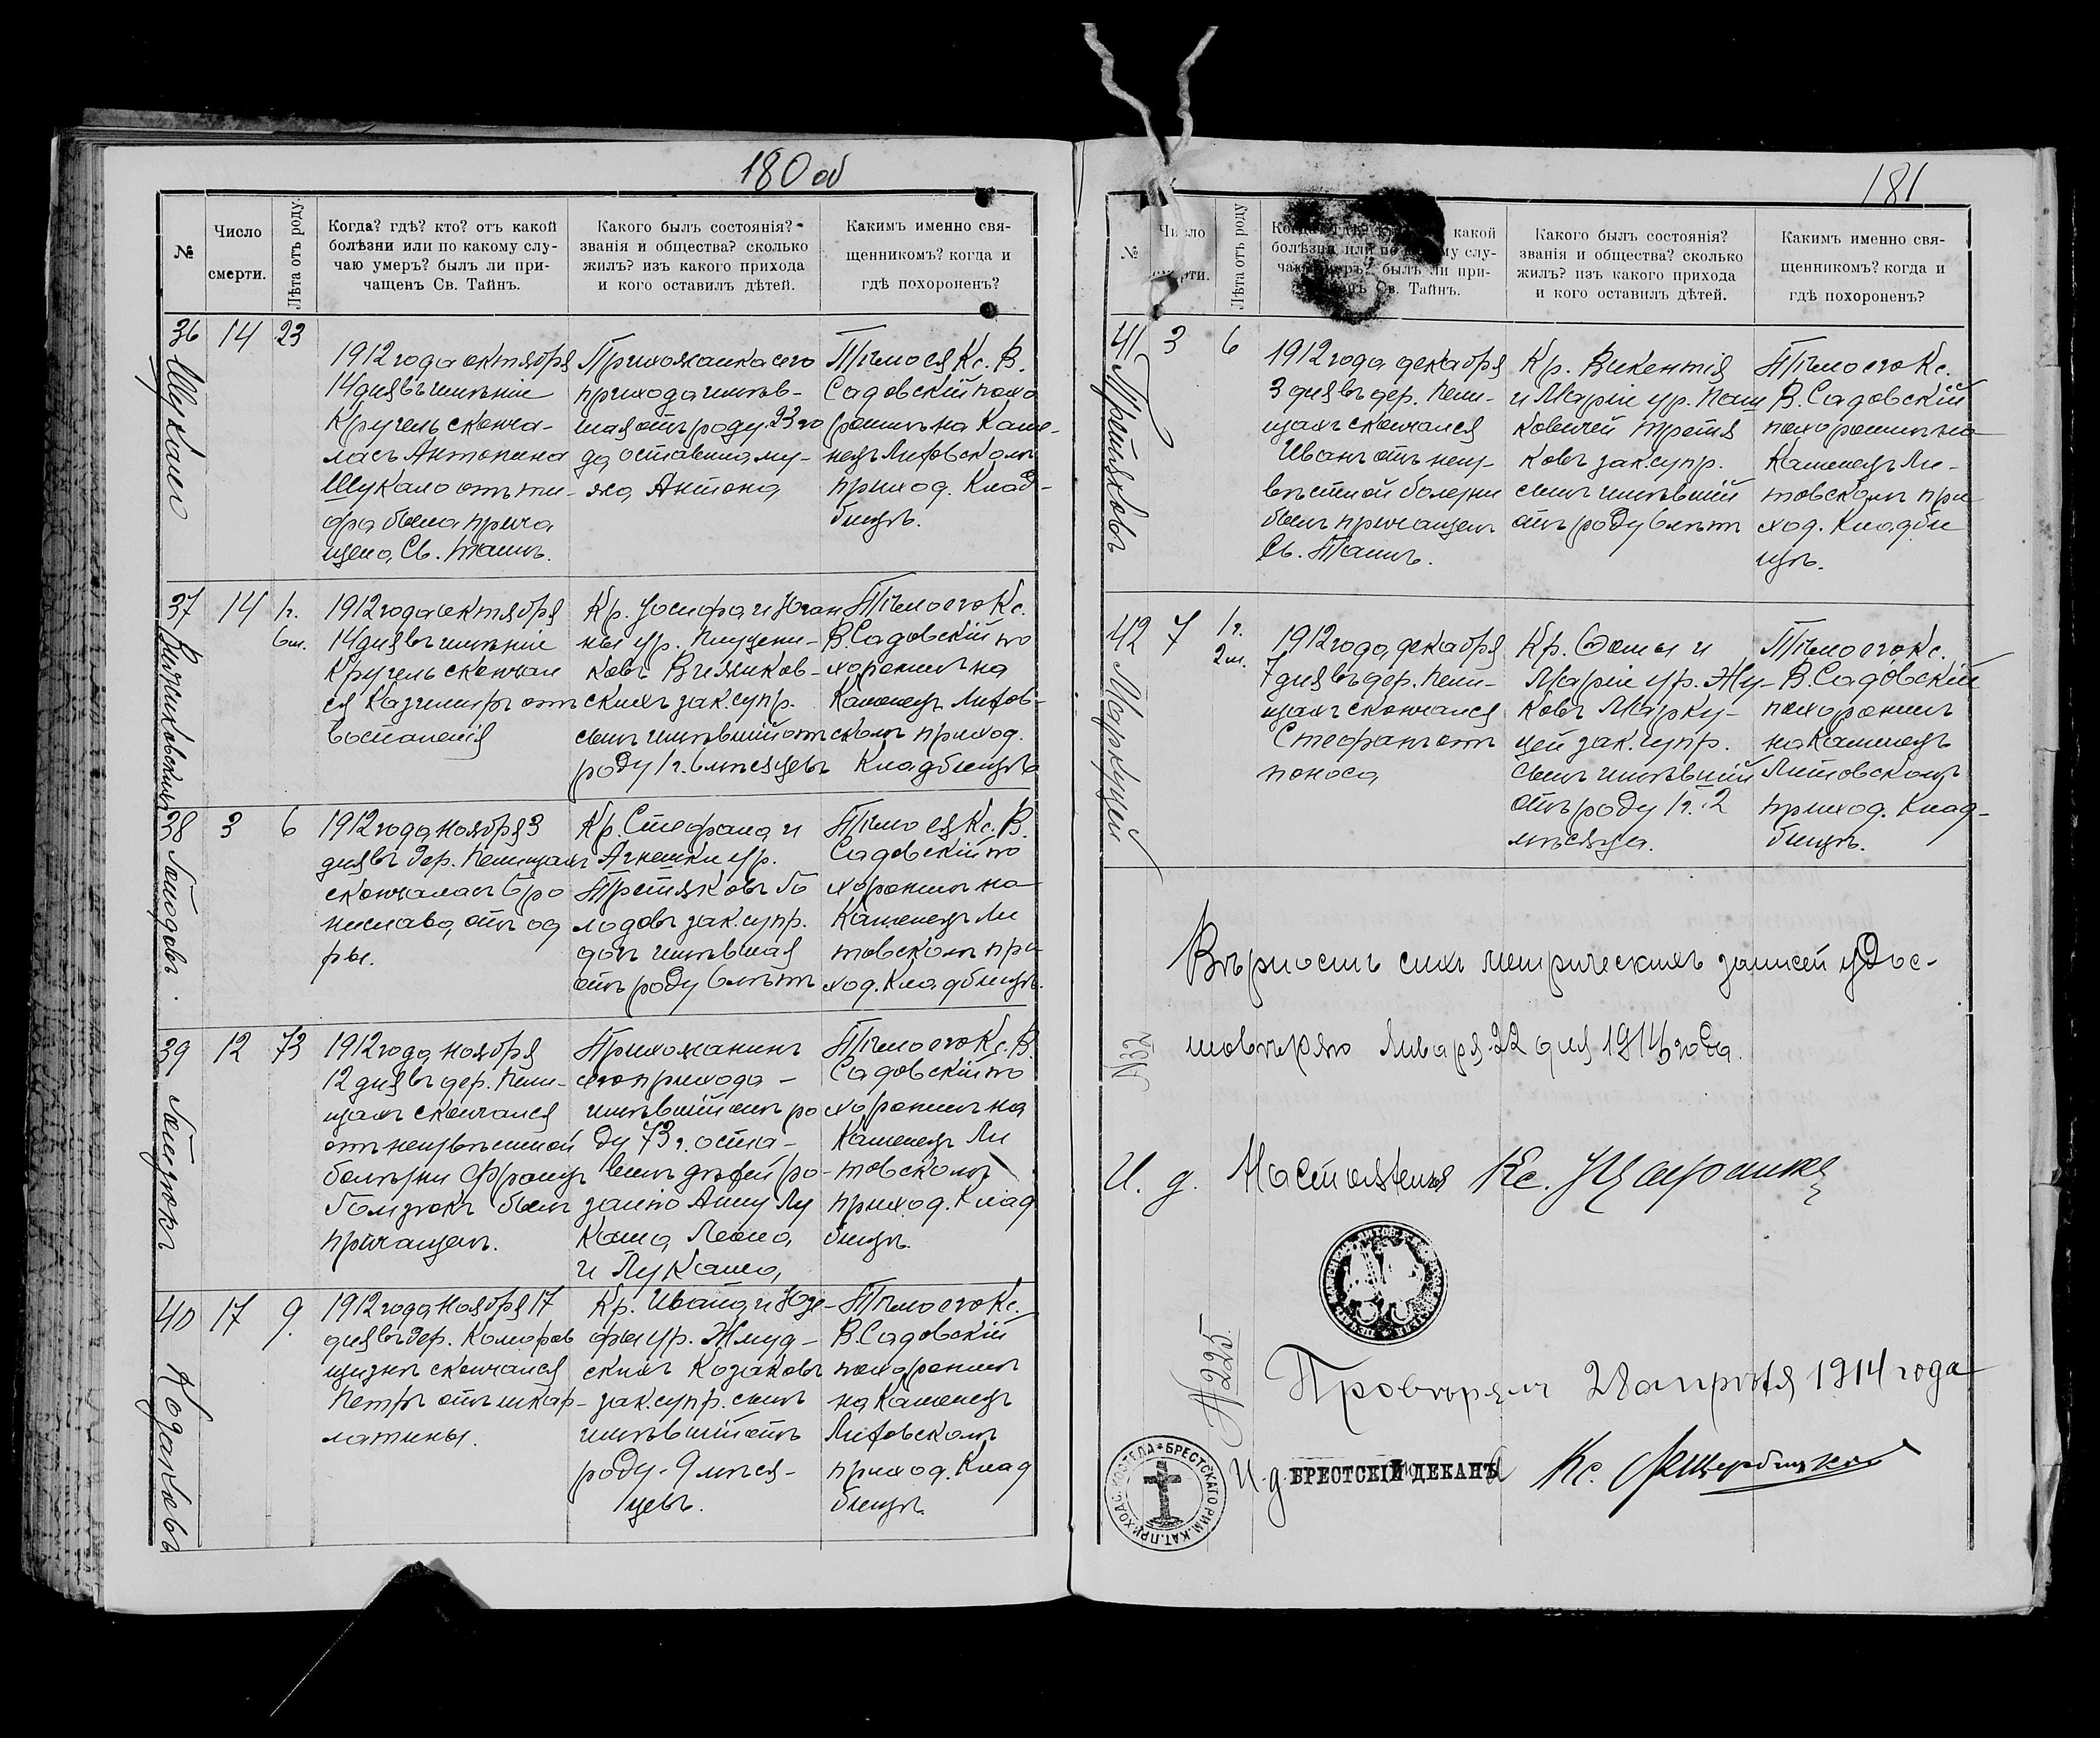 180 об
№
Число
смерти.
Лѣта отъ роду.
Когда? гдѣ? кто? отъ какой
болѣзни или по какому слу-
чаю умеръ? былъ ли при-
чащенъ Св. Тайнъ.
Какого былъ состоянія?
званія и общества? сколько
жилъ? изъ какого прихода
и кого оставилъ дѣтей.
Какимъ именно свя-
щенникомъ? когда и
гдѣ похороненъ?
36
Шукало
14
23
1912 года октября
14 дня въ имѣніе
Кругель сконча-
лась Антонина
Шукало отъ ти-
фа была прича
щена Св. таинъ.
Прихожанка сего
прихода имѣв-
шая отъ роду 23 го
да оставила му-
жа Антона
Тѣло ея Кс. В.
Садовскій похо
ронилъ на Каме-
нецъ Литовскомъ
приход. Клад-
бищѣ.
37
14
1 г.
6 м.
1912 года октября
14 дня въ имѣніе
Кругель скончал
ся Казимиръ отъ
воспаленія
Кр. Іосифа и Юзан
ны ур.
ковъ
скихъ зак. супр.
сынъ имѣвшій отъ
роду 1 г. 6 мѣсяцевъ
Тѣло его Кс.
В. Садовскій по
хоронилъ на
Каменецъ Литов-
скомъ приход.
Кладбищѣ
38
Голодовъ.
3
6
1912 года ноября 3
дня въ дер. Пелищахъ
скончалась Бро
нислава отъ од
ры.
Кр. Стефана и
Агнешки ур.
Третьяковъ Го
лодовъ зак. супр.
дочь имѣвшая
отъ роду 6 лѣтъ
Тѣло ея Кс. В.
Садовскій по
хоронилъ на
Каменецъ Ли
товскомъ при
ход. Кладбищѣ.
39
Гользюкъ
12
73
1912 года ноября
12 дня въ дер. Пели-
щахъ скончался
отъ неизвѣстной
болѣзни Францъ
Гользюкъ былъ
причащенъ.
Прихожанинъ
сего прихода -
имѣвшій отъ ро
ду 73 г. оста-
вилъ дѣтей
Анну Лу
и Лукаша,
Тѣло его Кс. В.
Садовскій по
хоронилъ на
Каменецъ Ли
товскомъ
приход. Клад
бищѣ.
40
Козаковъ
17
9.
1912 года ноября 17
дня въ дер. Коморов
щизнѣ скончался
Петръ отъ шкар-
латины.
Кр. Ивана и Юзе-
фы ур. Жмуд-
скихъ Козаковъ
зак. супр. сынъ
имѣвшій отъ
роду 9 мѣся-
цевъ.
Тѣло его Кс.
В. Садовскій
похоронилъ
на Каменецъ
Литовскомъ
приход. Клад
бищѣ.
181
№
Лѣта отъ роду
какой
болѣзни или по
му слу-
ли при-
Св. Тайнъ.
Какого былъ состоянія?
званія и общества? сколько
жилъ? изъ какого прихода
и кого оставилъ дѣтей.
Какимъ именно свя-
щенникомъ? когда и
гдѣ похороненъ?
41
Третьяковъ
3
6
1912 года декабря
3 дня въ дер. Пели-
щахъ скончался
Иванъ отъ неиз-
вѣстной болезни
былъ причащенъ
Св. Таинъ.
Кр. Викентія
и Маріи ур. Паш
ковичей Третья
ковъ зак. супр.
сынъ имѣвшій
отъ роду 6 лѣтъ
Тѣло его Кс.
В. Садовскій
похоронилъ на
Каменецъ Ли-
товскомъ при
ход. Кладби
щѣ.
42
Маркуцей
7
1 г.
2 м.
1912 года декабря
7 дня въ дер. Пели-
щахъ скончался
Стефанъ отъ
поноса
Кр. Фомы и
Маріи ур. Жу-
ковъ Марку-
цей зак. супр.
сынъ имѣвшій
отъ роду 1 г. 2
мѣсяца.
Тѣло его Кс.
В. Садовскій
похоронилъ
на Каменецъ
Литовскомъ
приход. Клад-
бищѣ.
Вѣрность сихъ метрическихъ записей удос-
товѣряю Января 22 дня 1914 года.
№32
И. д. Настоятеля Кс.
№225.
Провѣрялъ 28 апрѣля 1914 года
БРЕСТСКАГО РИМ. КАТ. ПРИХОДС. КОСТЕЛА
И. д. БРЕСТСКІЙ ДЕКАНЪ Кс.